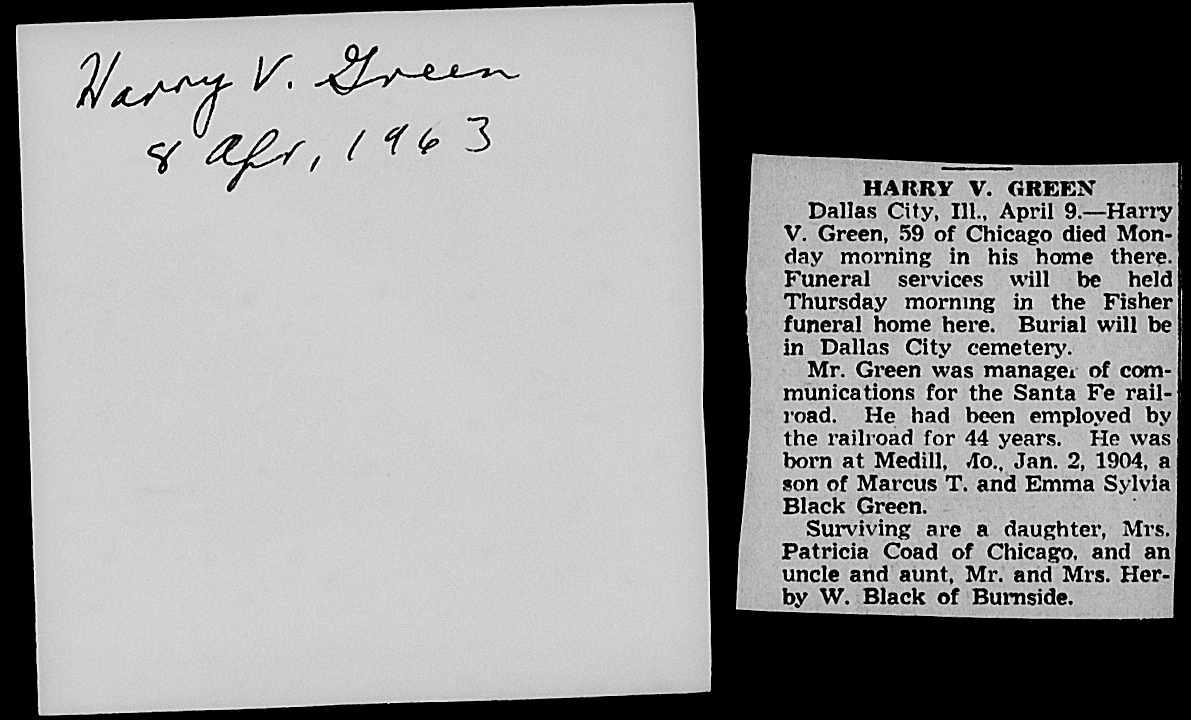 Harry V. Green
8 Apr, 1963
HARRY V. GREEN
Dallas City, Ill., April 9.—Harry
V. Green, 59 of Chicago died Mon-
day morning in his home there.
Funeral services will be held
Thursday morning in the Fisher
funeral home here. Burial will be
in Dallas City cemetery.
Mr. Green was manager of com-
munications for the Santa Fe rail-
road. He had been employed by
the railroad for 44 years. He was
born at Medill, Mo., Jan. 2, 1904, a
son of Marcus T. and Emma Sylvia
Black Green.
Surviving are a daughter, Mrs.
Patricia Coad of Chicago, and an
uncle and aunt, Mr. and Mrs. Her-
by W. Black of Burnside.